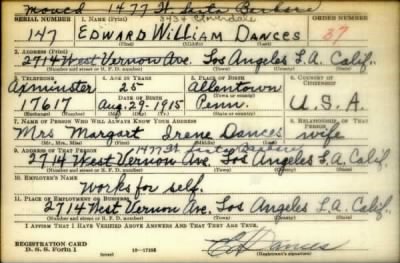 Moved 1477 W. Santa Barbara
3434 Cloverdale
SERIAL NUMBER 1. NAME (Print) ORDER NUMBER
147 EDWARD WILLIAM DANCES 37
2. ADDRESS (Print)
2714 West Vernon Ave. Los Angeles L.A. Calif.
(Number and street or R. F. D. number) (Town) (County) (State)
3. TELEPHONE 4. AGE IN YEARS 5. PLACE OF BIRTH 6. COUNTRY OF CITIZENSHIP
Axminster 25 Allentown
DATE OF BIRTH (Town or county)
17617 Aug. 29-1915 Penn. U.S.A.
7. NAME OF PERSON WHO WILL ALWAYS KNOW YOUR ADDRESS 8. RELATIONSHIP OF THAT PERSON
Mrs Margart Irene Dances wife
(Mr., Mrs., Miss) (First) (Middle) (Last)
9. ADDRESS OF THAT PERSON 1477 W. Santa Barbara
2714 West Vernon Ave. Los Angeles L.A. Calif.
(Number and street or R. F. D. number) (Town) (County) (State)
10. EMPLOYER'S NAME
Works for self.
11. PLACE OF EMPLOYMENT OR BUSINESS
2714 West Vernon Ave. Los Angeles L.A. Calif.
(Number and street or R. F. D. number) (Town) (County) (State)
I AFFIRM THAT I HAVE VERIFIED ABOVE ANSWERS AND THAT THEY ARE TRUE.
REGISTRATION CARD
D. S. S. Form 1 (over) 16-17105 E W Dances
(Registrant's signature)